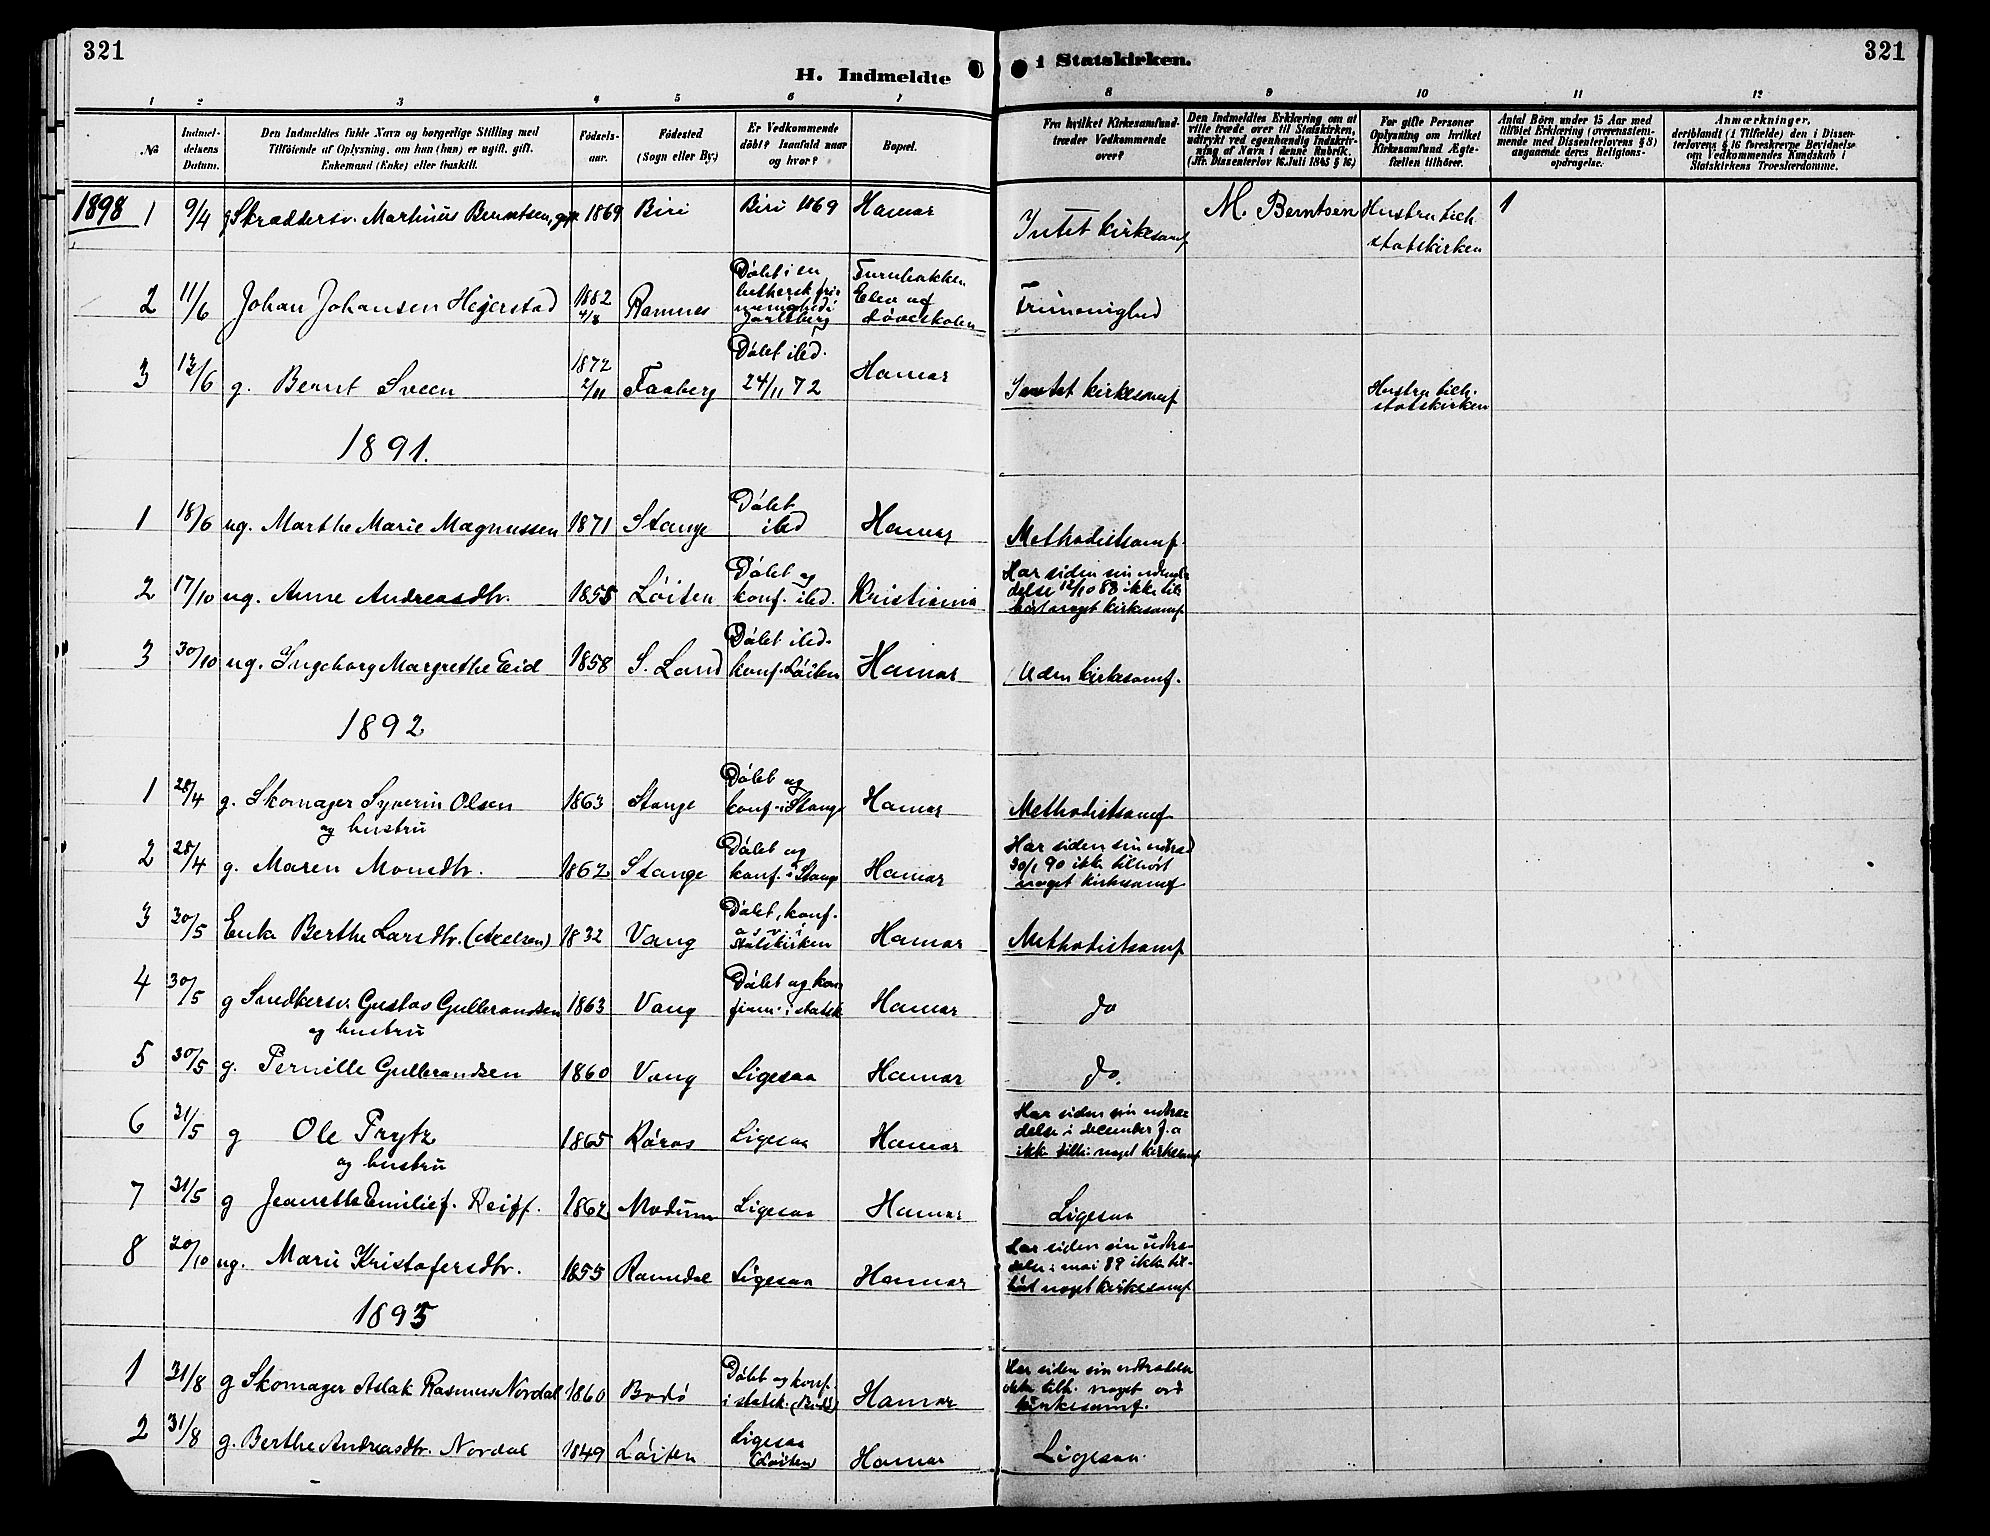 321
321
H. Indmeldte i Statskirken.
1 2 3 4 5 6 7 8 9 10 11 12
No
Indmeldelsens Datum.
Den Indmeldtes fulde Navn og borgerlige Stilling med
Tilföiende af Oplysning, om han (hun) er ugift, gift,
Enkemand (Enke) eller fraskilt.
Födselsaar.
Födested
(Sogn eller By.)
Er Vedkommende
döbt? Isaafald naar
og hvor?
Bopæl.
Fra hvilket Kirkesamfund
træder Vedkommende
over?
Den Indmeldtes Erklæring om at
ville træde over til Statskirken,
udtrykt ved egenhændig Indskrivning af Navn i denne Rubrik.
(Jfr. Dissenterlov 16. Juli 1845 § 16.)
For gifte Personer
Oplysning om hvilket
Kirkesamfund Ægtefællen tilhörer.
Antal Börn under 15 Aar med
tilföiet Erklæring (overensstemmende med Dissenterlovens § 8)
angaaende deres Religionsopdragelse.
Anmærkninger,
deriblandt (i Tilfælde) den i Dissenterlovens § 16 foreskrevne Bevidnelse
om Vedkommendes Kundskab i
Statskirkens Troeslærdomme.
1898 1 9/4 g Skræddersv. Martinius Berntsen, 1869 Biri Biri 1869 Hamar Intet kirkesamf M. Berntsen Hustru tilh. statskirken 1
2 11/6 Johan Johansen Hegerstad 1882 4/8 Ramnes Døbt i en luthersk frimenighed i Jarlsberg Furubakken Elev af døveskolen Frimenighed
3 12/6 g. Bernt Sveen 1872 2/11 Faaberg Døbt ilsd. 24/11 72 Hamar Intet kirkesamf Hustru tilh. statskirken
1891.
1 18/6 ug. Marthe Marie Magnussen 1871 Stange Døbt ilsd Hamar Methodistsamf.
2 17/10 ug. Anne Andreasdtr. 1855 Løiten Døbt og konf. ilsd. Kristiania Har siden sin udtrædelse 12/10 88 ikke tilhørt noget kirkesamf
3 30/10 ug. Ingeborg Margrethe Eid 1858 S. Land Døbt ilsd. konf. Løiten Hamar Uden kirkesamf.
1892
1 28/4 g. Skomager Syverin Olsen 1863 Stange Døbt og konf. i Stange Hamar Methodistsamf
og hustru
2 28/4 g. Maren Monsdtr. 1862 Stange Døbt og konf. i Stange Hamar Har siden sin udtræd 30/1 90 ikke tilhørt noget kirkesamf
3 30/5 Enke Berthe Larsdtr. (Axelsen) 1832 Vang Døbt, konf. o.s.v. i Statskirken Hamar Methodistsamf
4 30/5 g Snedkersv. Gustav Gulbrandsen 1863 Vang Døbt og konfirm. i statsk Hamar do
og hustru
5 30/5 g. Pernille Gulbrandsen 1860 Vang Ligesaa Hamar do.
6 31/5 g Ole Prytz 1865 Røros Ligesaa Hamar Har siden sin udtrædelse i december f.a ikke tilh. noget kirkesamf
og hustru
7 31/5 g Jeanette Emilie f. Reiff. 1862 Modum Ligesaa Hamar Ligesaa
8 20/10 ug. Marie Kristofersdtr. 1855 Romedal Ligesaa Hamar Har siden sin udtrædelse i mai 89 ikke tilhørt noget kirkesamf
1895
1 31/8 g Skomager Aslak Rasmus Nordal 1860 Bodø Døbt og konf. i statsk. (Bodø) Hamar Har siden sin udtrædelse ikke tilh. noget kirkesamf.
2 31/8 g. Berthe Andreasdtr. Nordal 1849 Løiten Ligesaa (Løiten) Hamar Ligesaa